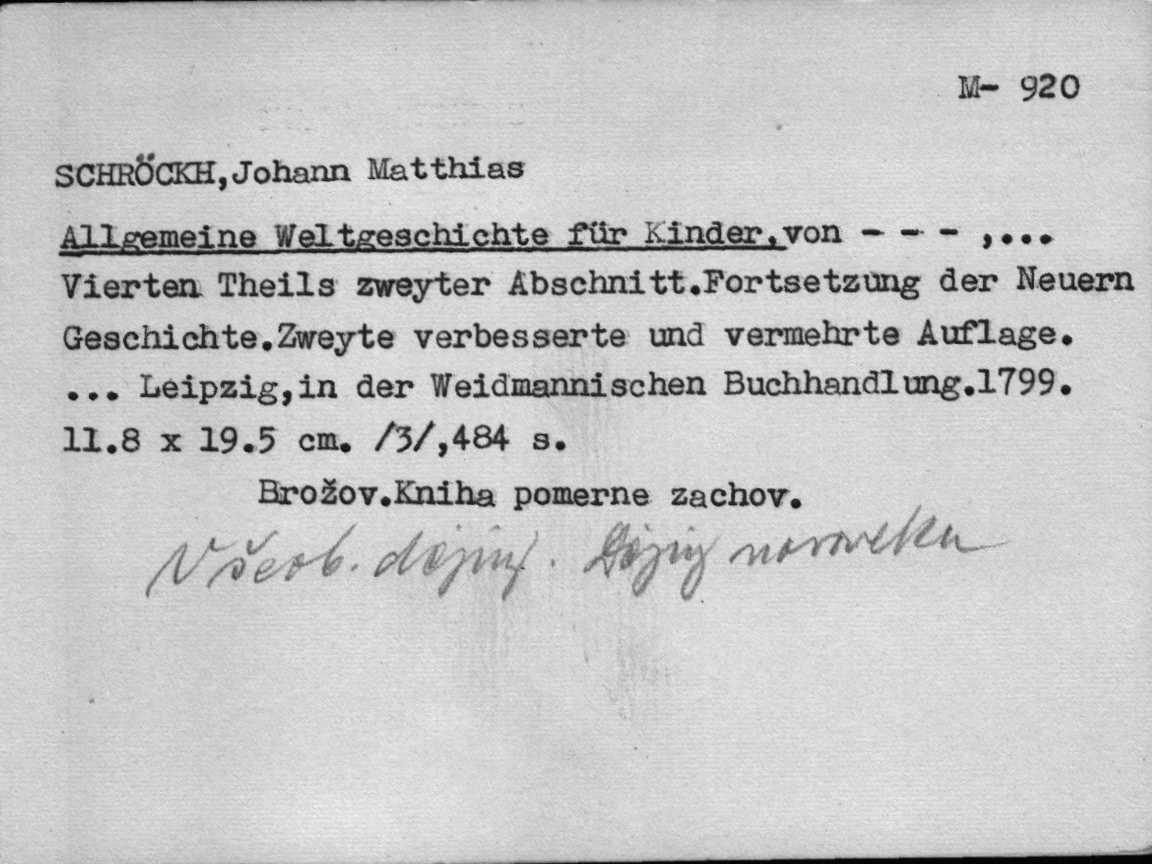 M- 920
SCHRÖCKH,Johann Matthias
Allgemeine Weltgeschichte für Kinder,von - - - ,...
Vierten Theils zweyter Abschnitt.Fortsetzung der Neuern
Geschichte.Zweyte verbesserte und vermehrte Auflage.
... Leipzig,in der Weidmannischen Buchhandlung.1799.
11.8 x 19.5 cm. /3/,484 s.
Brožov.Kniha pomerne zachov.
Všeob. dejiny. Dejiny novoveku